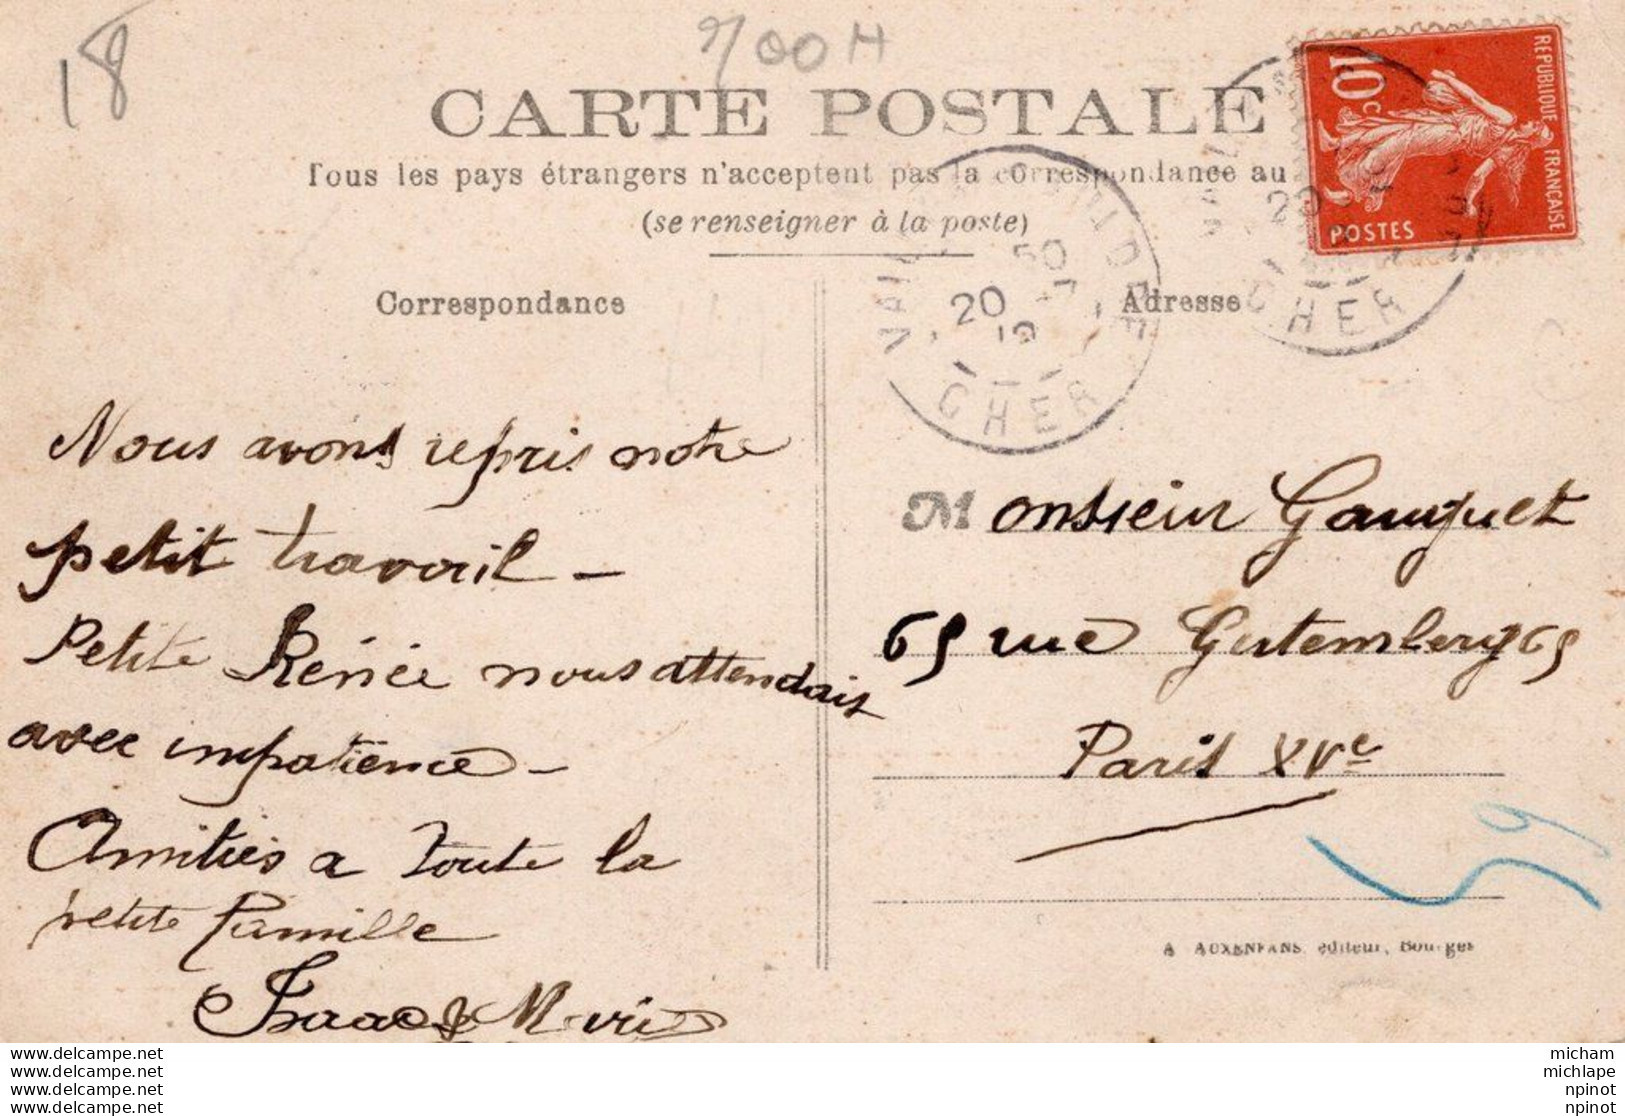 18
700 H
CARTE POSTALE
Tous les pays étrangers n'acceptent pas la correspondance au
(se renseigner à la poste)
RÉPUBLIQUE FRANÇAISE
10c
POSTES
50
20
19
CHER
20
CHER
Correspondance
Adresse
Nous avons repris notre
petit travail -
Petite Rénée nous attendais
avec impatience -
Amitiés a toute la
petite famille
Isaac & Marie
Monsieur Gauguet
69 rue Gutemberg 69
Paris XVe
59
A AUXENFANS, éditeur, Bourges
www.delcampe.net
www.delcampe.net
www.delcampe.net
www.delcampe.net
micham
michlape
npinot
npinot